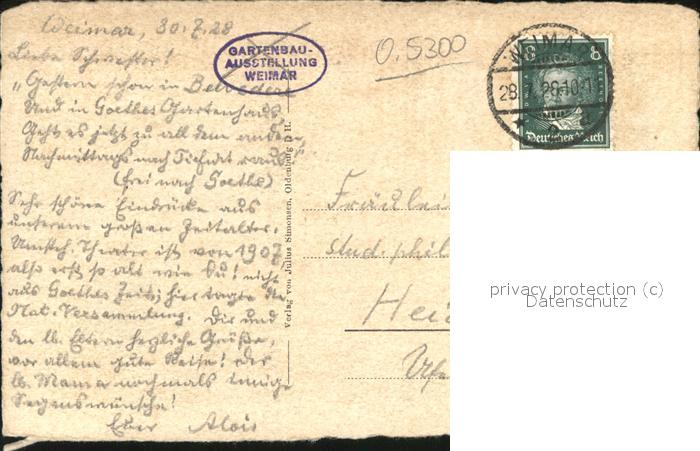 Weimar, 30.7.28
Liebe Schwester!
„Gestern schon in Belvedere
Und in Goethes Gartenhaus,
Geht es jetzt zu all dem andern
Nachmittags nach Tiefurt raus“
(frei nach Goethe)
Sehr schöne Eindrücke aus
unserem großen Zeitalter.
Theater ist von 1907
also erst so alt wie Du! nicht
aus Goethes Zeit; hier tagte die
Nat. Versammlung. Dir und
den lb. Eltern herzliche Grüße,
vor allem gute Reise! Der
lb. Mama nochmals innige
Segenswünsche!
Euer Alois
GARTENBAU-
AUSSTELLUNG
WEIMAR
0.5300
WEIMA
28 28.10-11
8 8
Deutsches Reich
Verlag von Julius Simonsen, Oldenburg i. H.
Fräulei
stud. phil
Hei
privacy protection (c)
Datenschutz